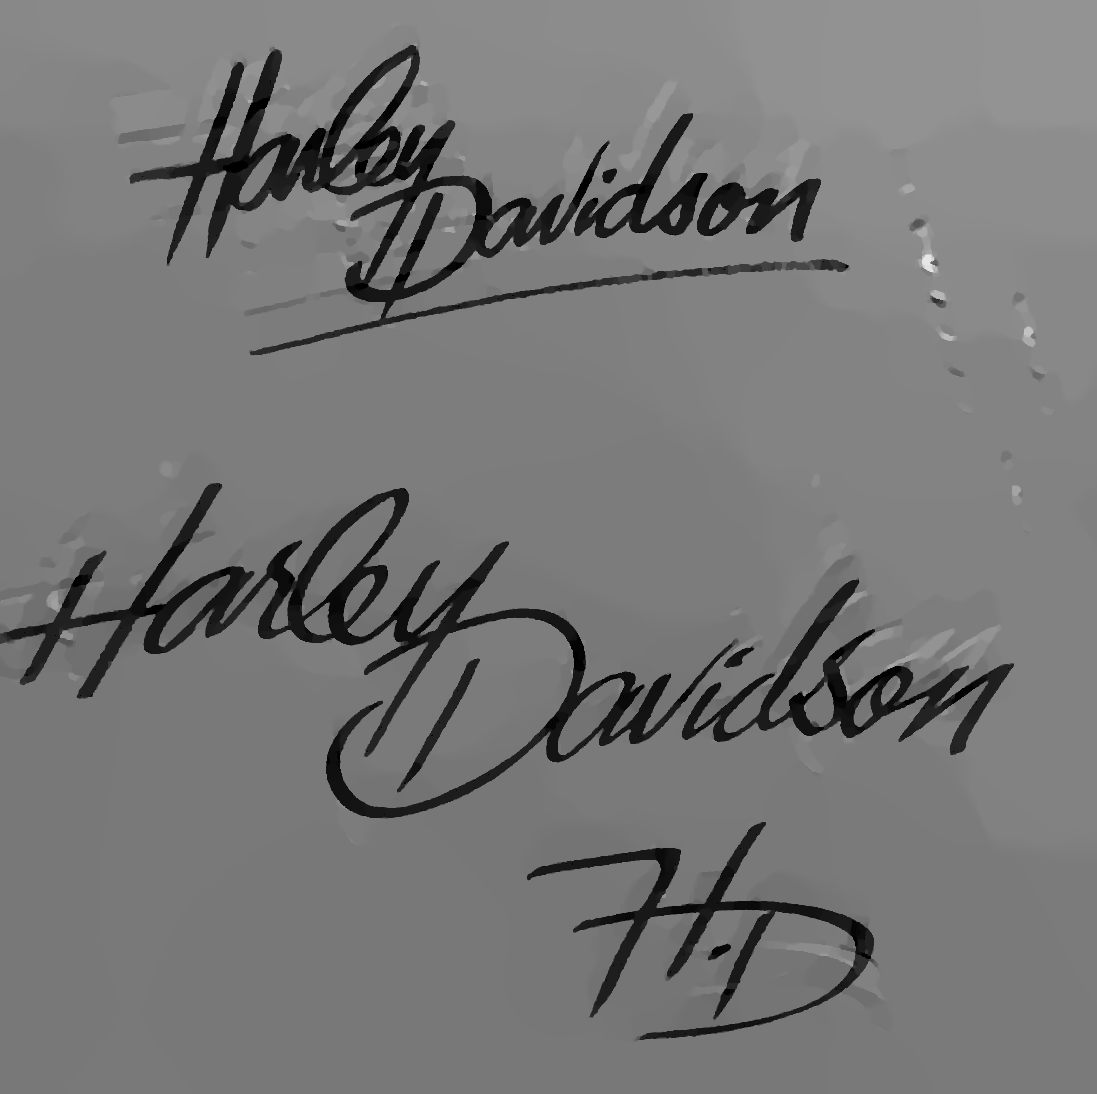 Harley
Davidson
Harley
Davidson
H.D